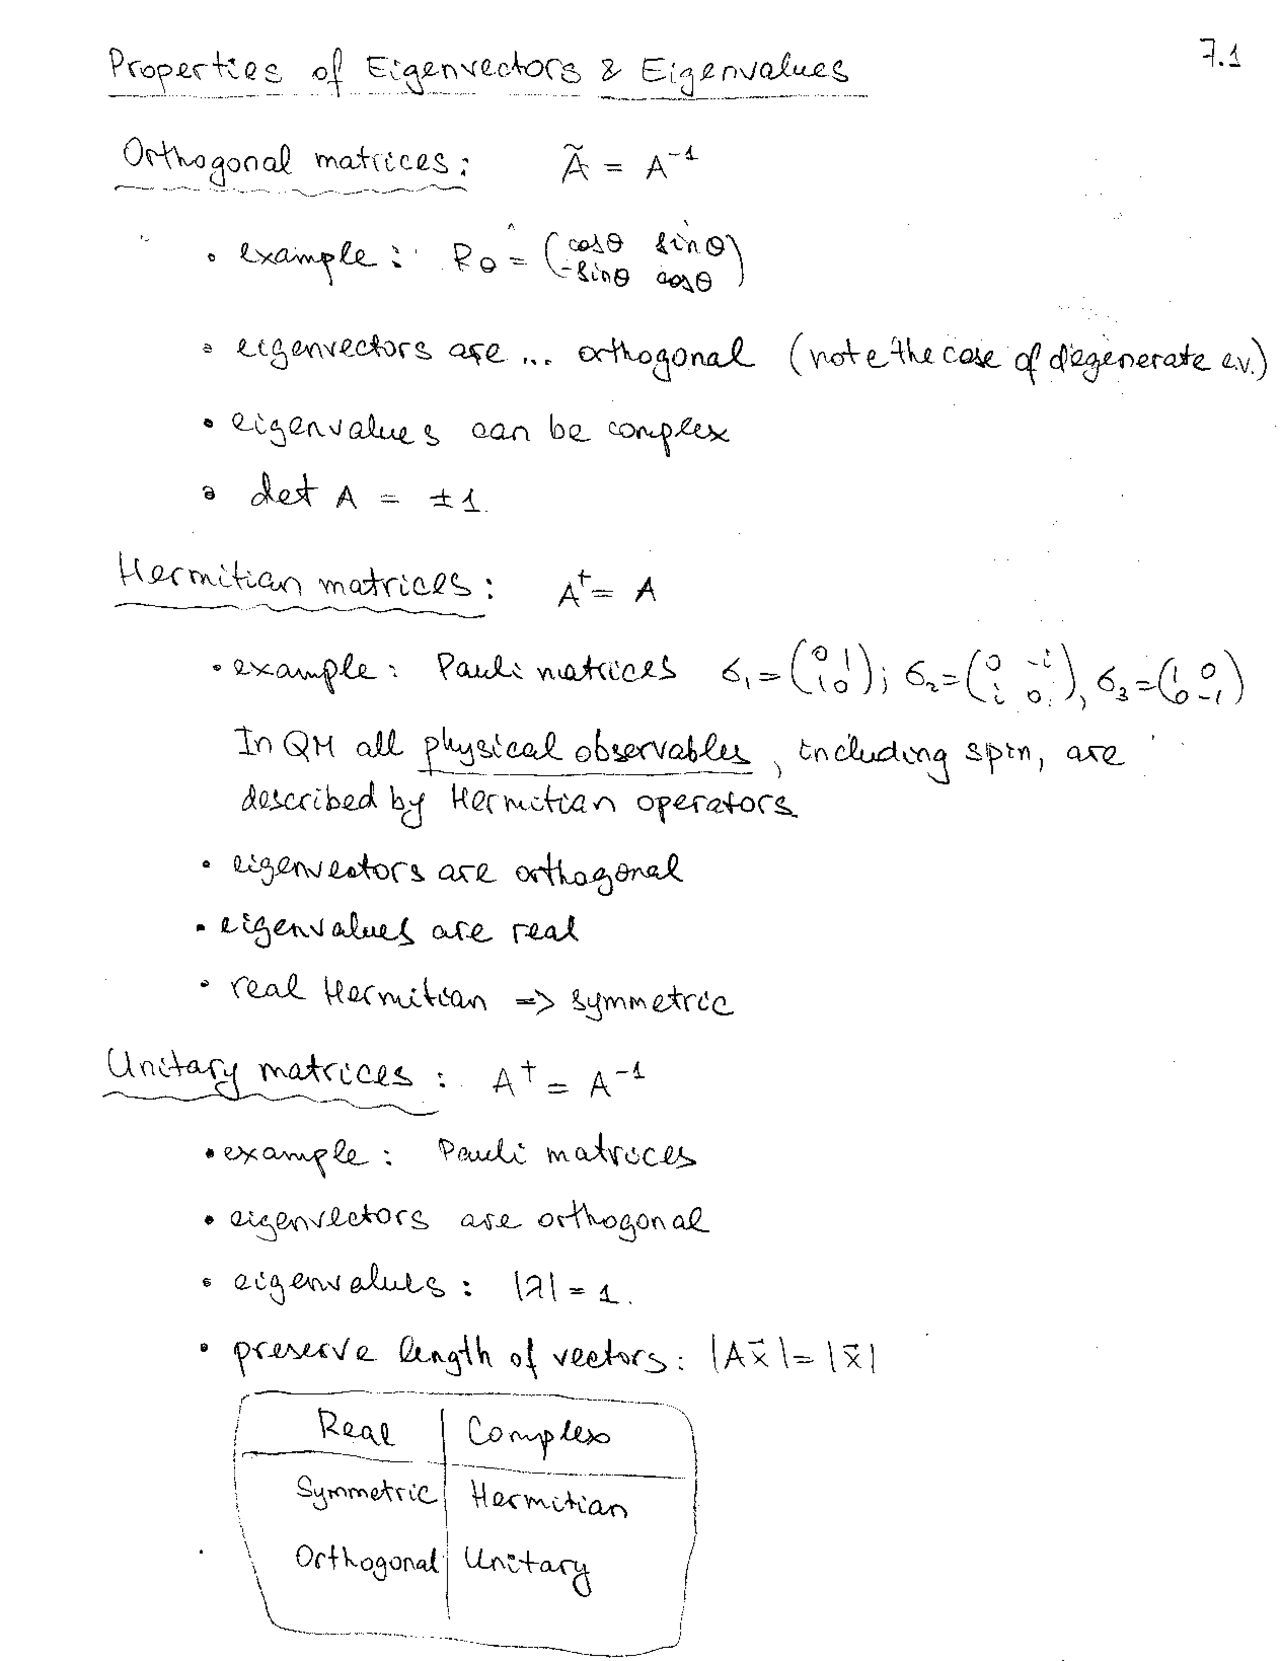 7.1
Properties of Eigenvectors & Eigenvalues
Orthogonal matrices: Ã = A⁻¹
• example: Rθ = (cosθ sinθ
-sinθ cosθ)
• eigenvectors are ... orthogonal (note the case of degenerate e.v.)
• eigenvalues can be complex
• det A = ±1.
Hermitian matrices: A⁺ = A
• example: Pauli matrices σ₁ = (0 1; 1 0); σ₂ = (0 -i; i 0), σ₃ = (1 0; 0 -1)
In QM all physical observables, including spin, are
described by Hermitian operators
• eigenvectors are orthogonal
• eigenvalues are real
• real Hermitian => symmetric
Unitary matrices: A⁺ = A⁻¹
• example: Pauli matrices
• eigenvectors are orthogonal
• eigenvalues: |λ| = 1.
• preserve length of vectors: |Ax⃗| = |x⃗|
Real | Complex
Symmetric | Hermitian
Orthogonal | Unitary